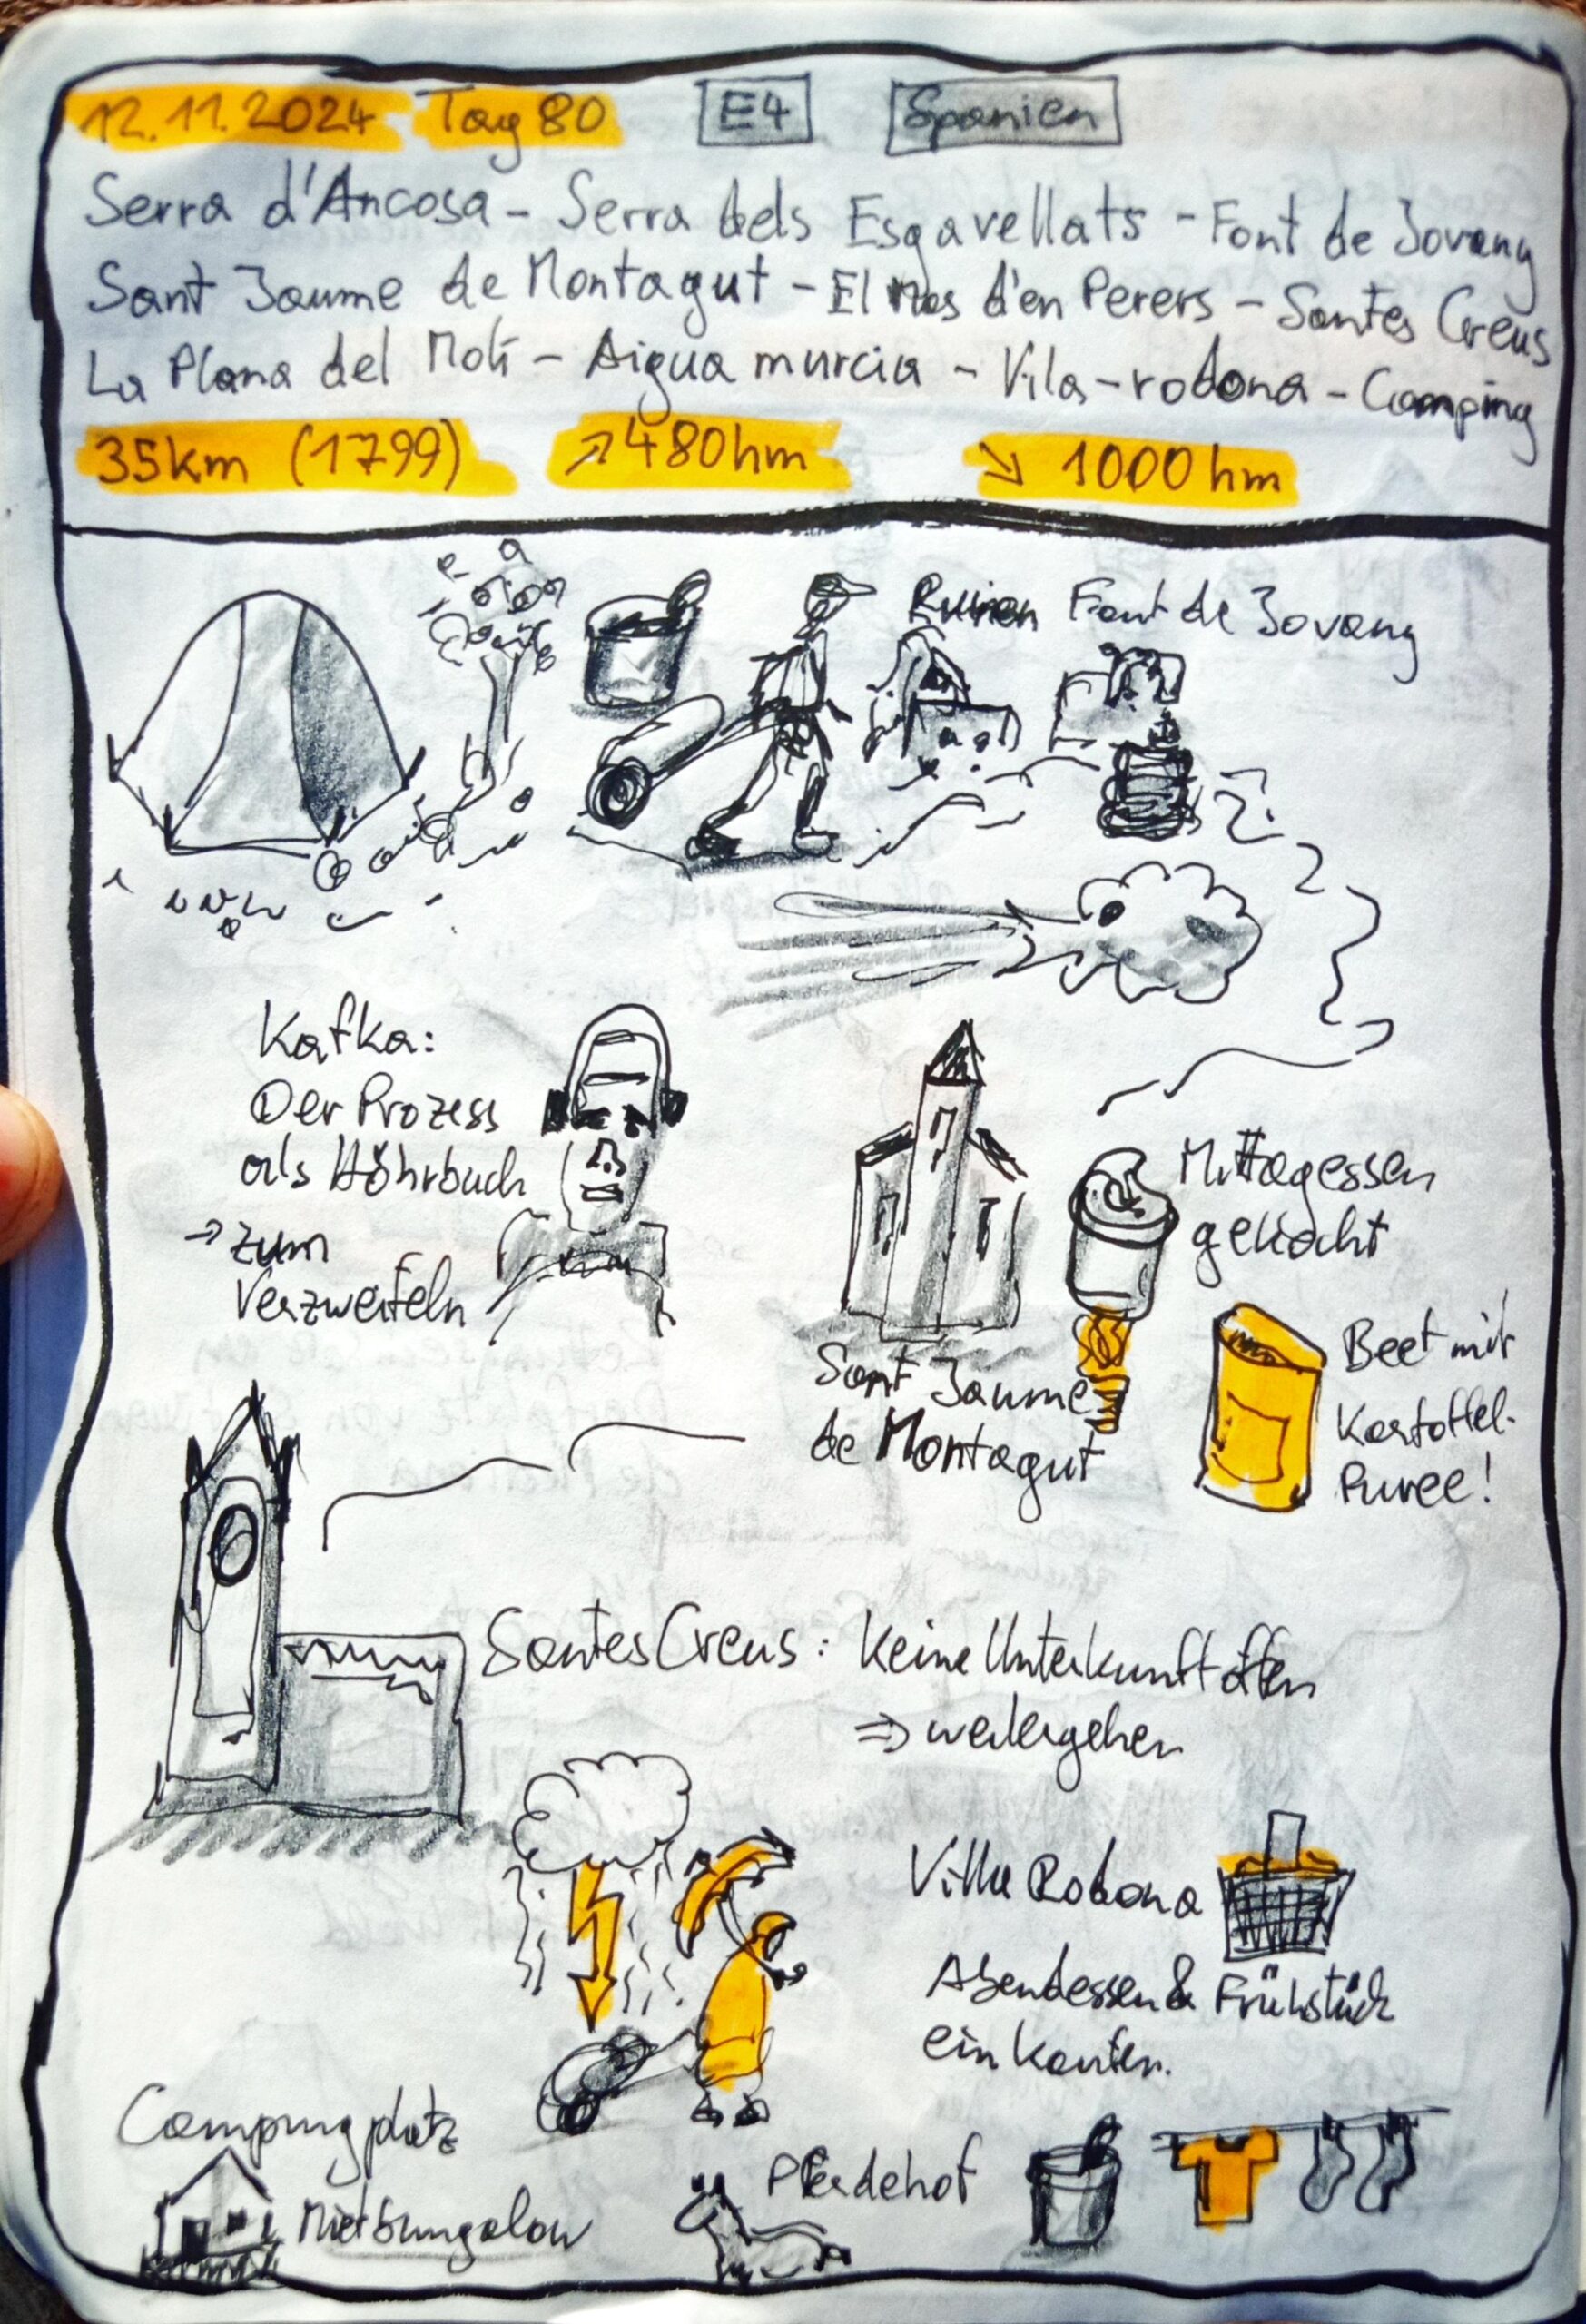 12.11.2024 Tag 80 E4 Spanien
Serra d'Ancosa - Serra dels Esgavellats - Font de Jovany
Sant Jaume de Montagut - El Mas d'en Perers - Santes Creus
La Plana del Molí - Aigua murcia - Vila-rodona - Camping
35km (1799) ↗480hm ↘ 1000hm
Ruinen Font de Jovany
Kafka:
Der Prozess
als Höhrbuch
→ zum
Verzweifeln
Mittagessen
gekocht
Sant Jaume
de Montagut
Beet mit
Kartoffel-
Puree!
Santes Creus: Keine Unterkunft offen
⇒ weitergehen
Villa Rodona
Abendessen & Frühstück
einkaufen.
Campingplatz
Mietbungalow
Pferdehof